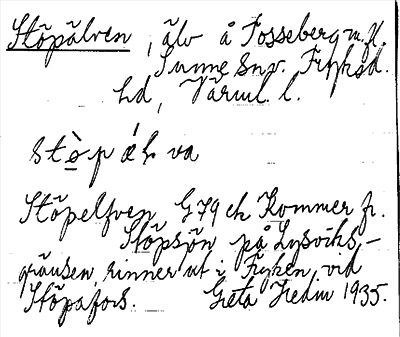 Stöpälven, älv å Fosseberg m. fl.
Sunne snv. Fryksd.
hd, Värml. l.
stè̱p ǽl va
Stöpelfven G79 ek Kommer fr.
Stöpsjön på Lysviks-
gränsen, rinner ut i Fryken vid
Stöpafors. Greta Hedin 1935.